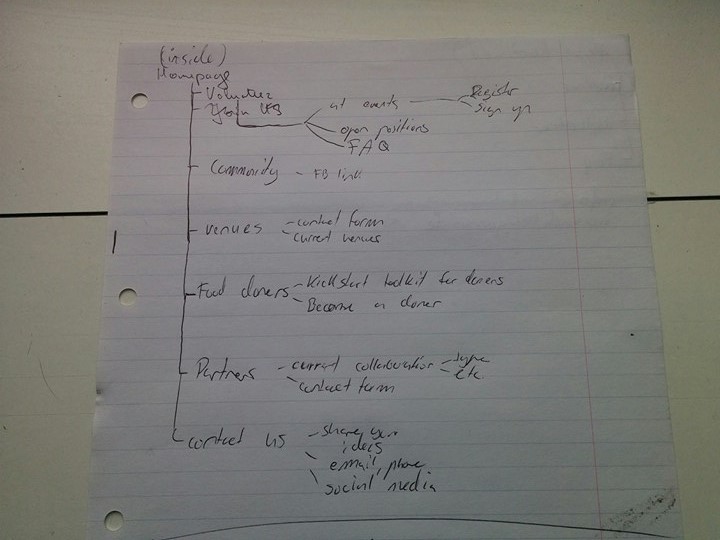 (inside)
Homepage
Volunteer
Join US
at events
Register
Sign up
open positions
FAQ
Community - FB link
venues - contact form
- current venues
Food doners - Kickstart toolkit for doners
- Become a doner
Partners - current collaboration - type
- etc.
- contact form
contact us - share your
ideas
- email, phone
social media